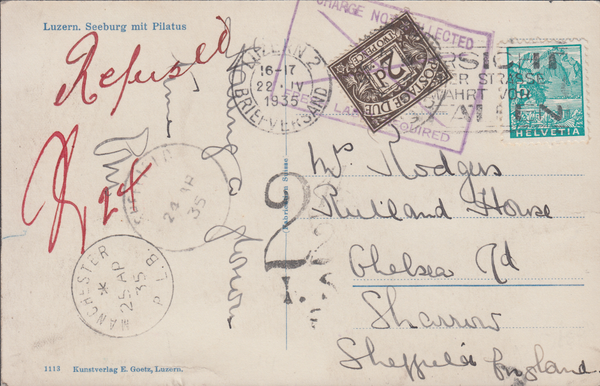 Luzern. Seeburg mit Pilatus
Refused
24
CHARGE NOT COLLECTED
LABEL REQUIRED
LUZERN 2
16-17
22.IV
1935
BRIEFVERSAND
POSTAGE DUE
2d
VORSICHT
STRASSE
FAHRT VOR
HELVETIA
Mr Rodgers
Rutland House
Chelsea Rd
Sharrow
Sheffield England.
2
SHEFFIELD
24 AP
35
MANCHESTER
25 AP
35
P.L.B.
1113 Kunstverlag E. Goetz, Luzern.